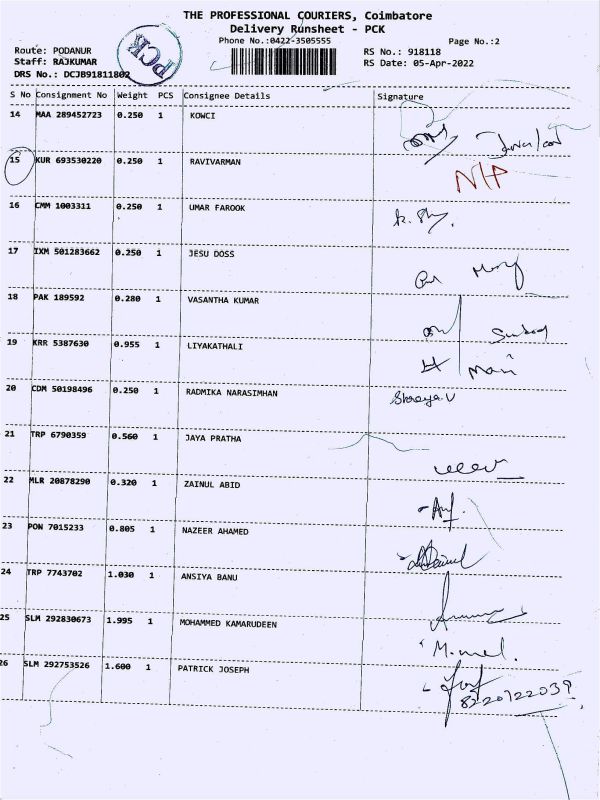 THE PROFESSIONAL COURIERS, Coimbatore
Delivery Runsheet - PCK
Phone No.:0422-3505555
Page No.:2
Route: PODANUR
RS No.: 918118
Staff: RAJKUMAR
RS Date: 05-Apr-2022
DRS No.: DCJB91811802
PCK
S No Consignment No Weight PCS Consignee Details Signature
14 MAA 289452723 0.250 1 KOWCI
15 KUR 693530220 0.250 1 RAVIVARMAN N/P
16 CMM 1003311 0.250 1 UMAR FAROOK
17 IXM 501283662 0.250 1 JESU DOSS
18 PAK 189592 0.280 1 VASANTHA KUMAR
19 KRR 5387630 0.955 1 LIYAKATHALI Mani
20 CDM 50198496 0.250 1 RADMIKA NARASIMHAN Shreya.V
21 TRP 6790359 0.560 1 JAYA PRATHA
22 MLR 20878290 0.320 1 ZAINUL ABID
23 PON 7015233 0.805 1 NAZEER AHAMED
24 TRP 7743702 1.030 1 ANSIYA BANU
25 SLM 292830673 1.995 1 MOHAMMED KAMARUDEEN
26 SLM 292753526 1.600 1 PATRICK JOSEPH